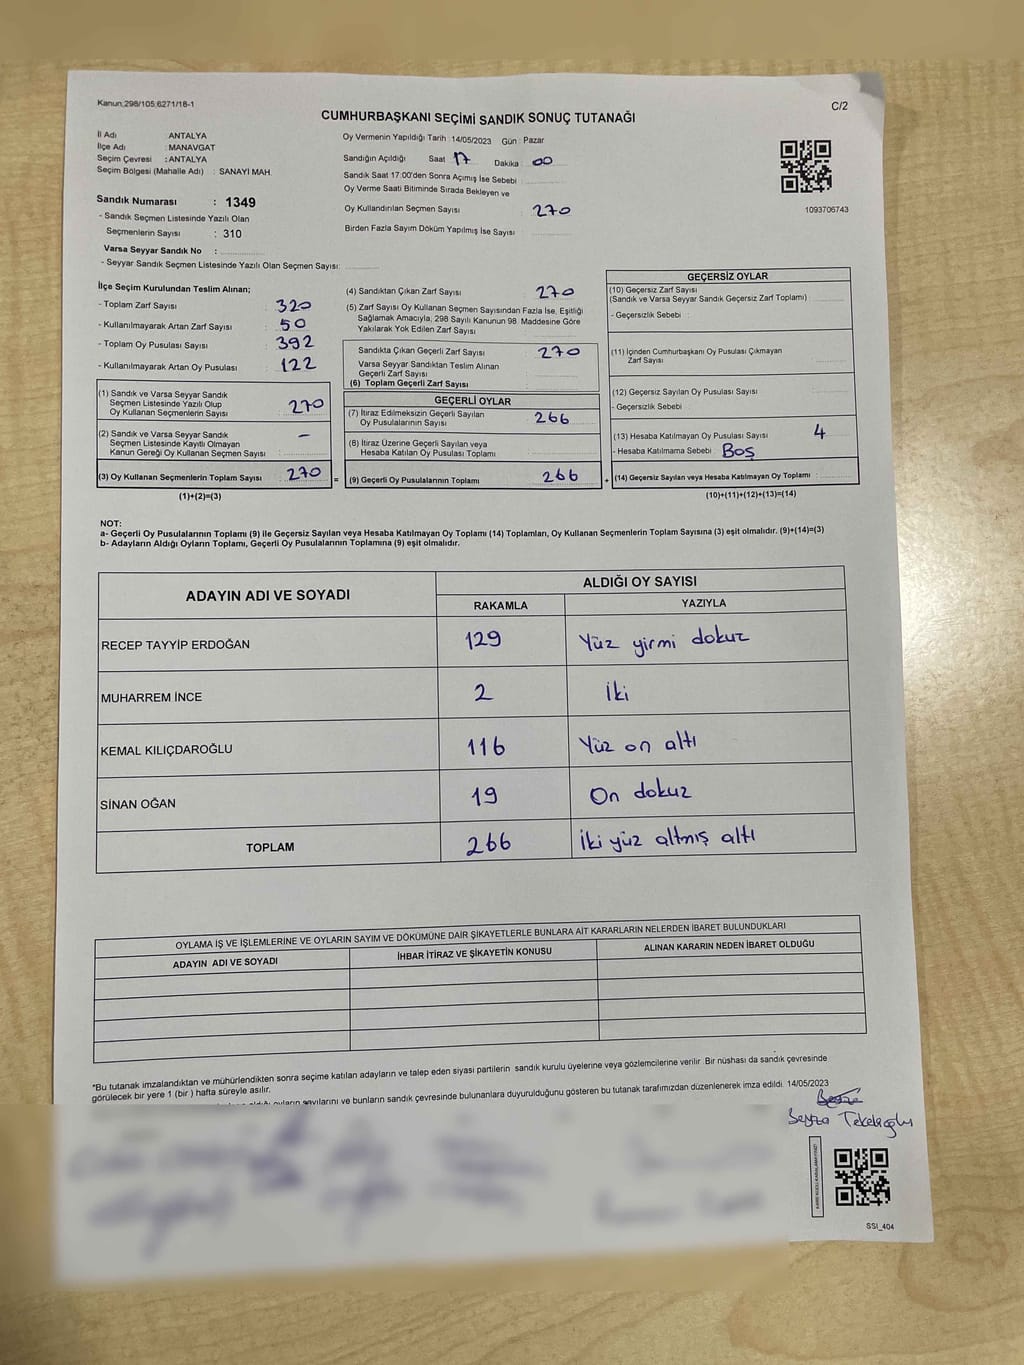 Kanun:298/105;6271/18-1
C/2
CUMHURBAŞKANI SEÇİMİ SANDIK SONUÇ TUTANAĞI
İl Adı : ANTALYA
İlçe Adı : MANAVGAT
Seçim Çevresi : ANTALYA
Seçim Bölgesi (Mahalle Adı) : SANAYİ MAH.
Sandık Numarası : 1349
- Sandık Seçmen Listesinde Yazılı Olan
Seçmenlerin Sayısı : 310
Varsa Seyyar Sandık No :
- Seyyar Sandık Seçmen Listesinde Yazılı Olan Seçmen Sayısı:
Oy Vermenin Yapıldığı Tarih : 14/05/2023 Gün : Pazar
Sandığın Açıldığı Saat 17 Dakika 00
Sandık Saat 17:00'den Sonra Açımış İse Sebebi :
Oy Verme Saati Bitiminde Sırada Bekleyen ve
Oy Kullandırılan Seçmen Sayısı : 270
Birden Fazla Sayım Döküm Yapılmış İse Sayısı :
1093706743
İlçe Seçim Kurulundan Teslim Alınan;
- Toplam Zarf Sayısı : 320
- Kullanılmayarak Artan Zarf Sayısı : 50
- Toplam Oy Pusulası Sayısı : 392
- Kullanılmayarak Artan Oy Pusulası : 122
(1) Sandık ve Varsa Seyyar Sandık
Seçmen Listesinde Yazılı Olup
Oy Kullanan Seçmenlerin Sayısı : 270
(2) Sandık ve Varsa Seyyar Sandık
Seçmen Listesinde Kayıtlı Olmayan
Kanun Gereği Oy Kullanan Seçmen Sayısı : -
(3) Oy Kullanan Seçmenlerin Toplam Sayısı : 270
(1)+(2)=(3)
(4) Sandıktan Çıkan Zarf Sayısı : 270
(5) Zarf Sayısı Oy Kullanan Seçmen Sayısından Fazla İse, Eşitliği
Sağlamak Amacıyla; 298 Sayılı Kanunun 98. Maddesine Göre
Yakılarak Yok Edilen Zarf Sayısı :
Sandıkta Çıkan Geçerli Zarf Sayısı : 270
Varsa Seyyar Sandıktan Teslim Alınan
Geçerli Zarf Sayısı :
(6) Toplam Geçerli Zarf Sayısı :
GEÇERLİ OYLAR
(7) İtiraz Edilmeksizin Geçerli Sayılan
Oy Pusulalarının Sayısı : 266
(8) İtiraz Üzerine Geçerli Sayılan veya
Hesaba Katılan Oy Pusulası Toplamı :
= (9) Geçerli Oy Pusulalarının Toplamı : 266
GEÇERSİZ OYLAR
(10) Geçersiz Zarf Sayısı
(Sandık ve Varsa Seyyar Sandık Geçersiz Zarf Toplamı) :
- Geçersizlik Sebebi :
(11) İçinden Cumhurbaşkanı Oy Pusulası Çıkmayan
Zarf Sayısı :
(12) Geçersiz Sayılan Oy Pusulası Sayısı :
- Geçersizlik Sebebi :
(13) Hesaba Katılmayan Oy Pusulası Sayısı : 4
- Hesaba Katılmama Sebebi : Boş
+ (14) Geçersiz Sayılan veya Hesaba Katılmayan Oy Toplamı :
(10)+(11)+(12)+(13)=(14)
NOT:
a- Geçerli Oy Pusulalarının Toplamı (9) ile Geçersiz Sayılan veya Hesaba Katılmayan Oy Toplamı (14) Toplamları, Oy Kullanan Seçmenlerin Toplam Sayısına (3) eşit olmalıdır. (9)+(14)=(3)
b- Adayların Aldığı Oyların Toplamı, Geçerli Oy Pusulalarının Toplamına (9) eşit olmalıdır.
ADAYIN ADI VE SOYADI
ALDIĞI OY SAYISI
RAKAMLA YAZIYLA
RECEP TAYYİP ERDOĞAN 129 Yüz yirmi dokuz
MUHARREM İNCE 2 İki
KEMAL KILIÇDAROĞLU 116 Yüz on altı
SİNAN OĞAN 19 On dokuz
TOPLAM 266 İki yüz altmış altı
OYLAMA İŞ VE İŞLEMLERİNE VE OYLARIN SAYIM VE DÖKÜMÜNE DAİR ŞİKAYETLERLE BUNLARA AİT KARARLARIN NELERDEN İBARET BULUNDUKLARI
ADAYIN ADI VE SOYADI İHBAR İTİRAZ VE ŞİKAYETİN KONUSU ALINAN KARARIN NEDEN İBARET OLDUĞU
*Bu tutanak imzalandıktan ve mühürlendikten sonra seçime katılan adayların ve talep eden siyasi partilerin sandık kurulu üyelerine veya gözlemcilerine verilir. Bir nüshası da sandık çevresinde
görülecek bir yere 1 (bir) hafta süreyle asılır.
aldığı oyların sayılarını ve bunların sandık çevresinde bulunanlara duyurulduğunu gösteren bu tutanak tarafımızdan düzenlenerek imza edildi. 14/05/2023
Beyza
SSI_404